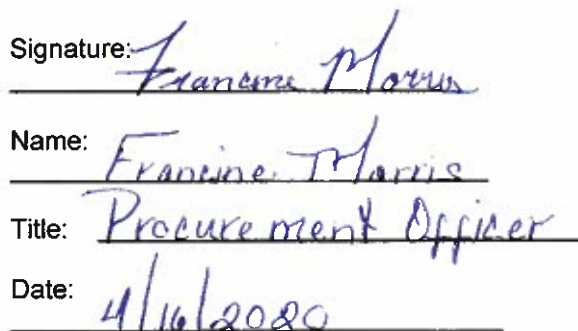 Signature: Francine Morris
Name: Francine Morris
Title: Procurement Officer
Date: 4/16/2020